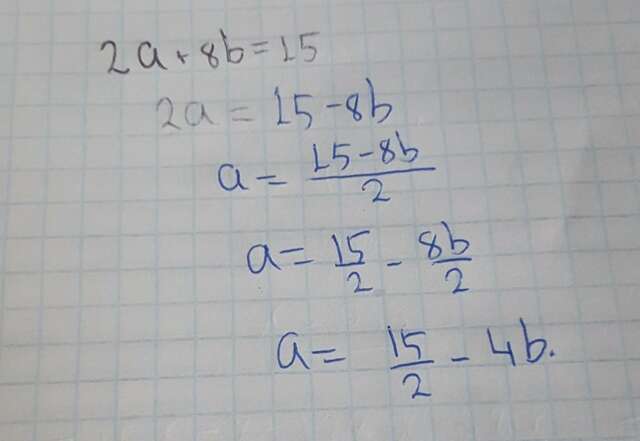 2a + 8b = 15
2a = 15 - 8b
a = \frac{15 - 8b}{2}
a = \frac{15}{2} - \frac{8b}{2}
a = \frac{15}{2} - 4b.